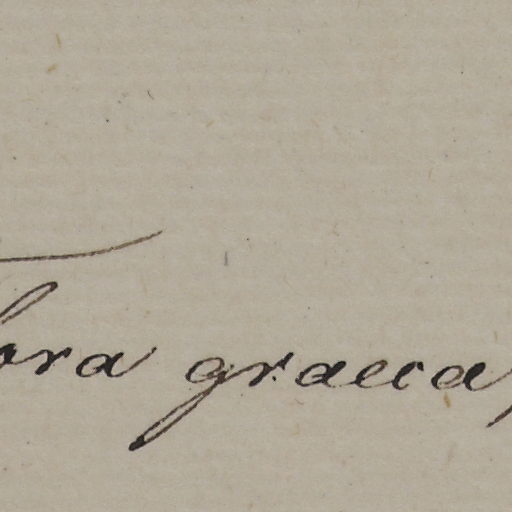 lora graeca,